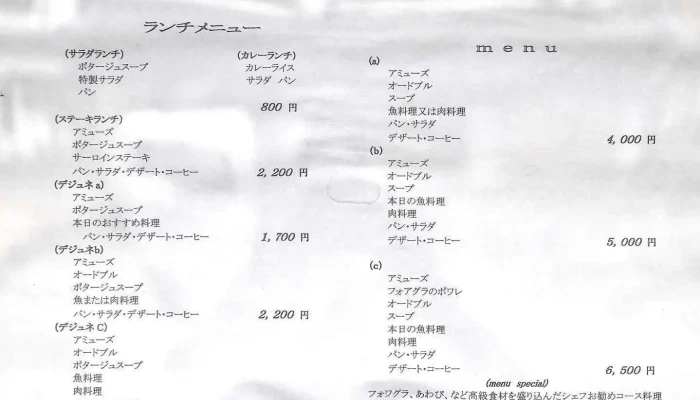 ランチメニュー
(サラダランチ)
ポタージュスープ
特製サラダ
パン
(カレーランチ)
カレーライス
サラダ パン
800 円
(ステーキランチ)
アミューズ
ポタージュスープ
サーロインステーキ
パン・サラダ・デザート・コーヒー 2,200 円
(デジュネ a)
アミューズ
ポタージュスープ
本日のおすすめ料理
パン・サラダ・デザート・コーヒー 1,700 円
(デジュネb)
アミューズ
オードブル
ポタージュスープ
魚または肉料理
パン・サラダ・デザート・コーヒー 2,200 円
(デジュネ C)
アミューズ
オードブル
ポタージュスープ
魚料理
肉料理
menu
(a)
アミューズ
オードブル
スープ
魚料理又は肉料理
パン・サラダ
デザート・コーヒー 4,000 円
(b)
アミューズ
オードブル
スープ
本日の魚料理
肉料理
パン・サラダ
デザート・コーヒー 5,000 円
(c)
アミューズ
フォアグラのポワレ
オードブル
スープ
本日の魚料理
肉料理
パン・サラダ
デザート・コーヒー 6,500 円
(menu special)
フォワグラ、あわび、など高級食材を盛り込んだシェフお勧めコース料理